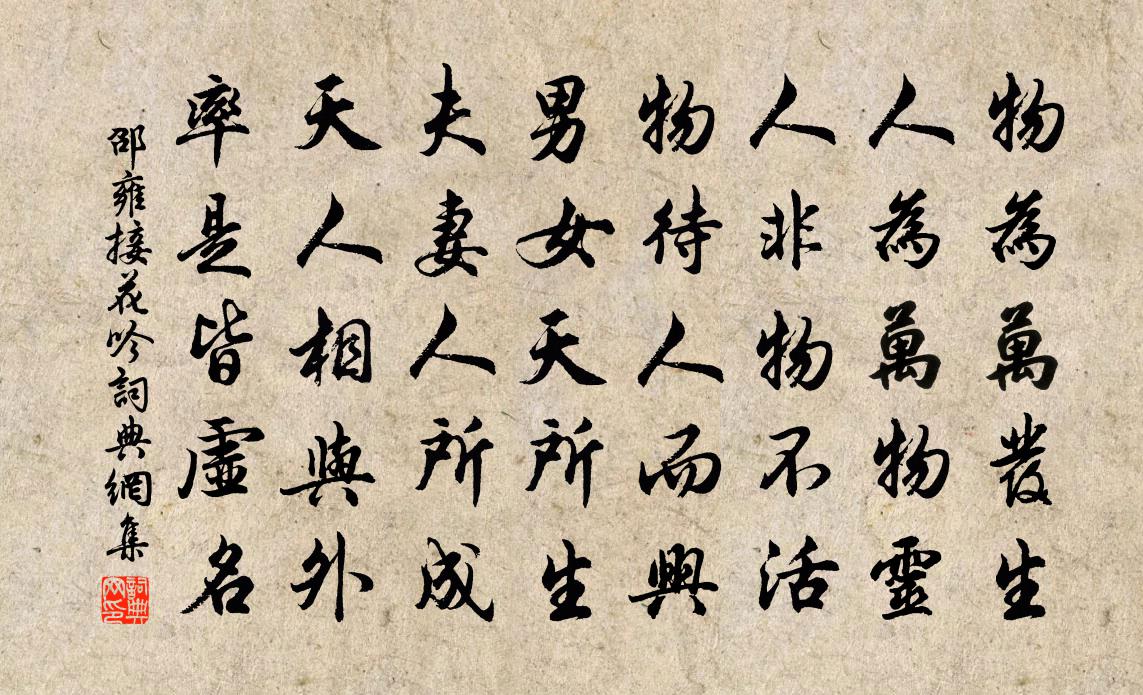 物為萬發生
人為萬物靈
人非物不活
物待人而興
男女天所生
夫妻人所成
天人相與外
率是皆虛名
邵雍接花吟詞典網集
詞典網印